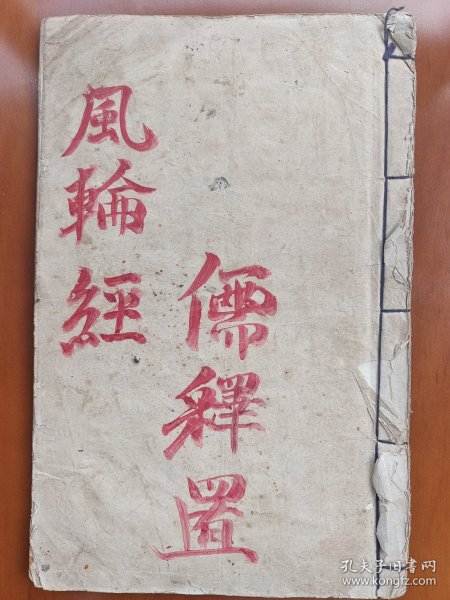 儒釋置
風輪經
孔夫子旧书网
www.kongfz.com